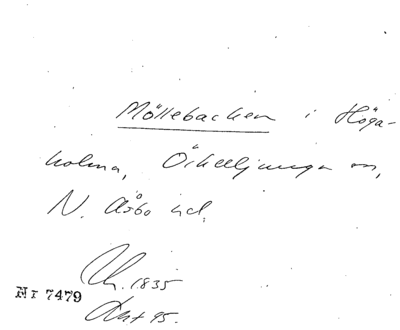 Möllebacken i Höga-
holma, Örkelljunga sn,
N. Åsbo hd.
Nr 7479
1835
95.